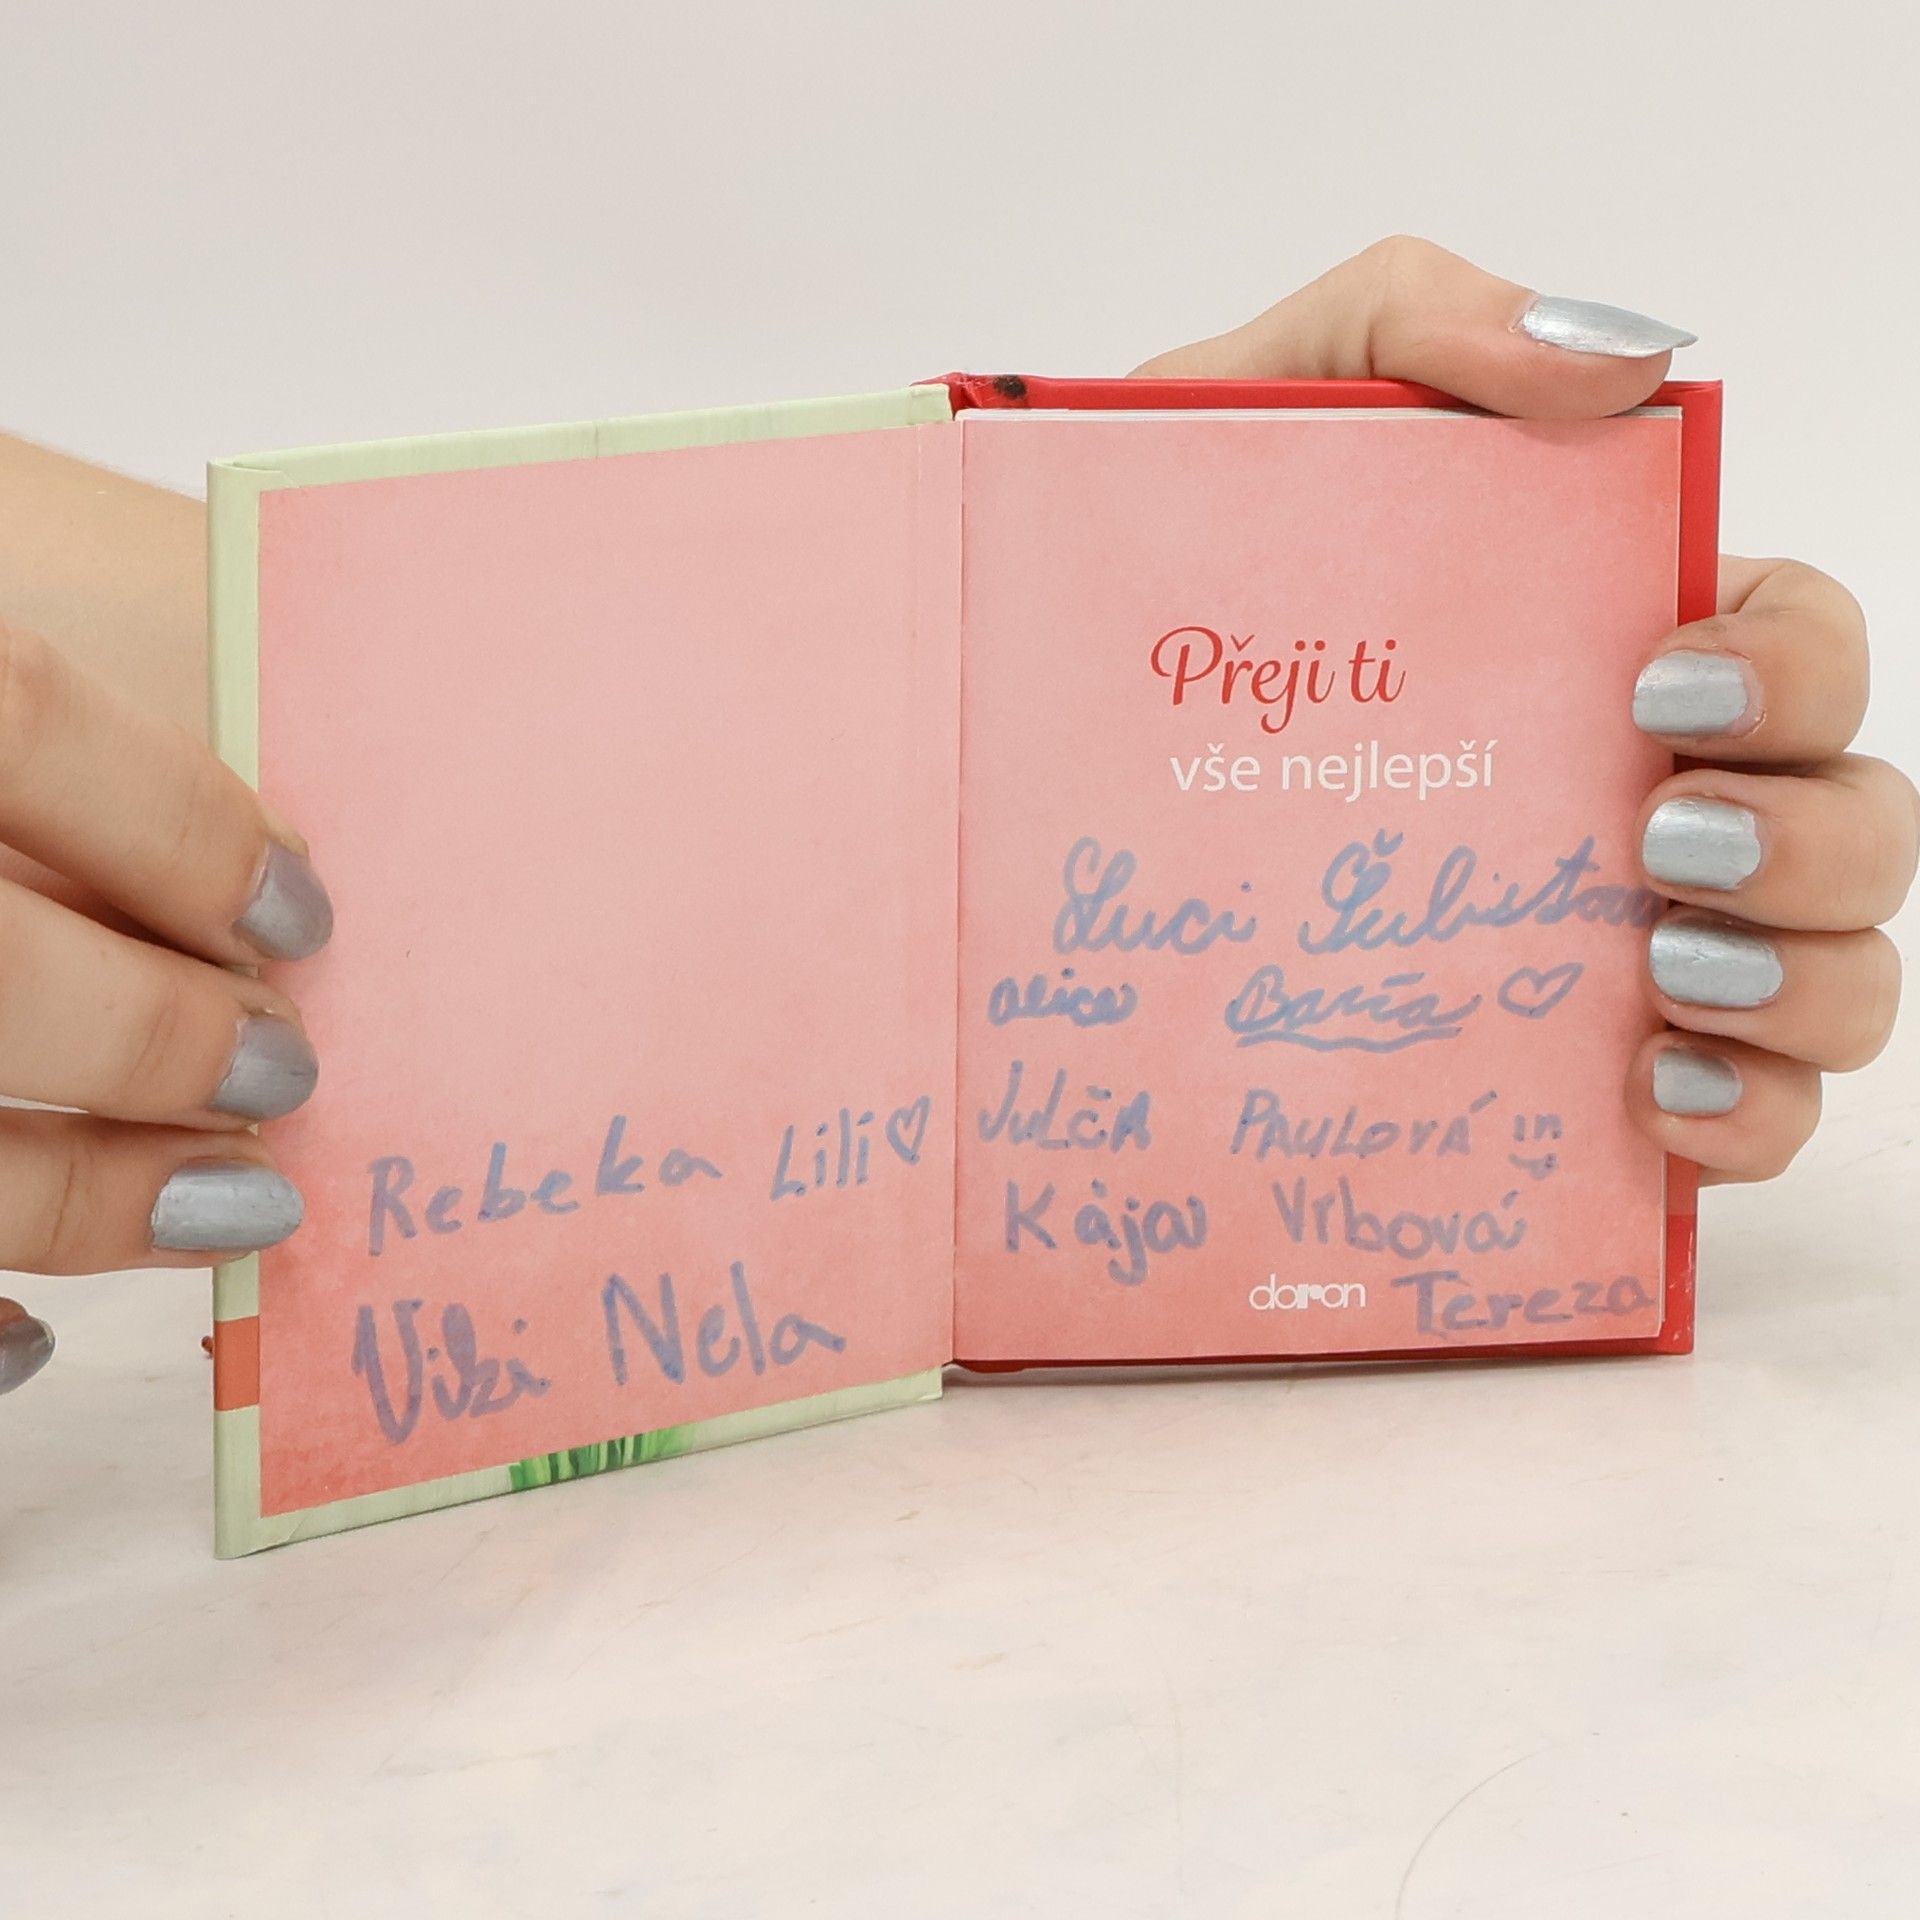 Rebeka Lili
Viki Nela
Přeji ti
vše nejlepší
Luci
alice Barča
JULČA PAULOVÁ
Kája Vrbová
doron Tereza